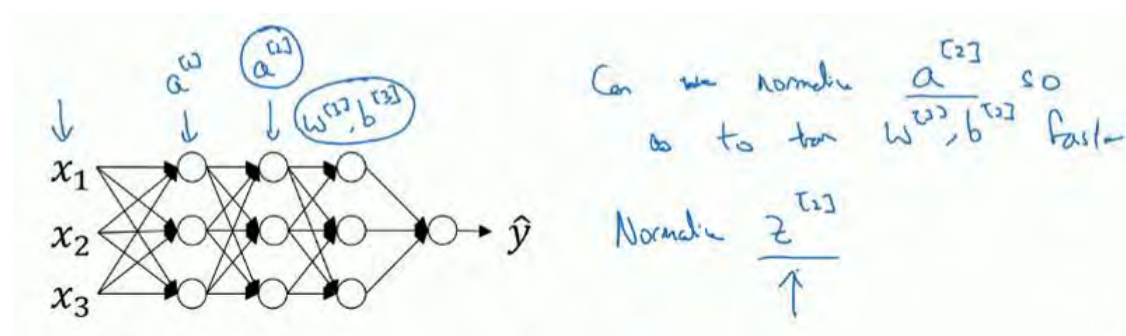 a^[1]
a^[2]
w^[3], b^[3]
x₁
x₂
x₃
ŷ
Can we normalize a^[2] so
as to train w^[3], b^[3] faster
Normalize z^[2]